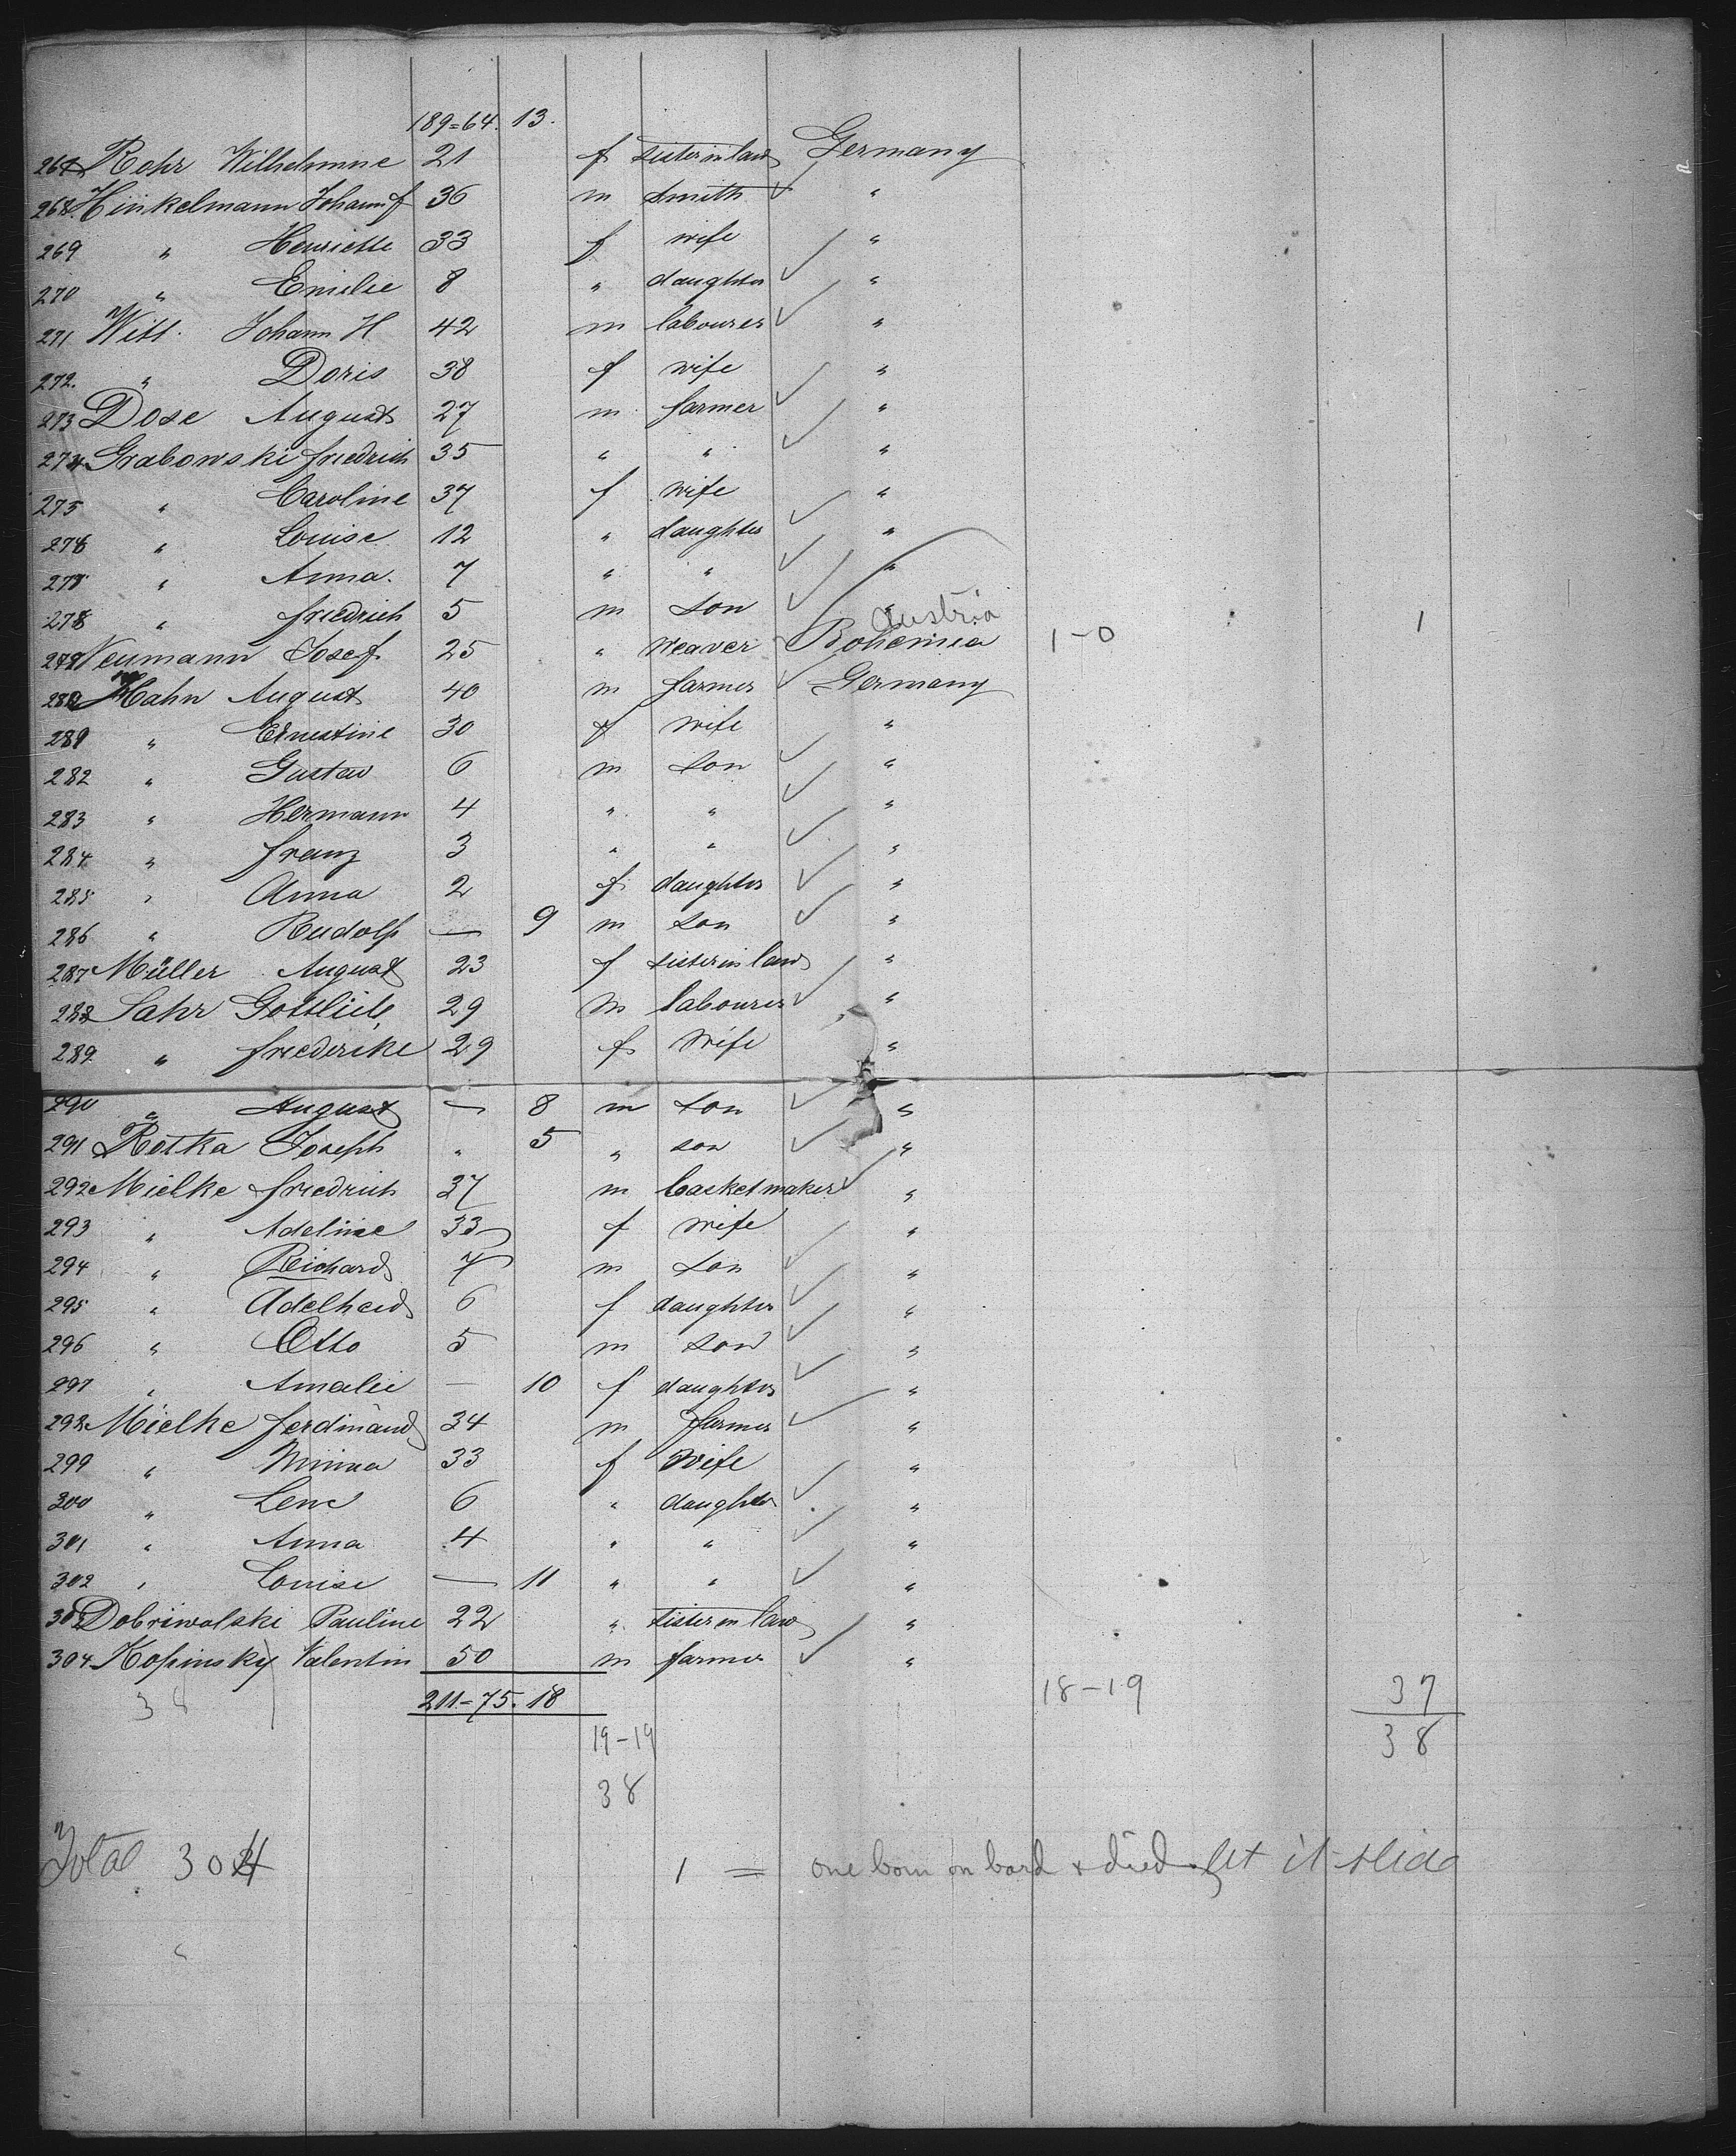 189=64. 13.
267 Rohr Wilhelmine 21 f sister in law Germany
268 Hinkelmann Johann f 36 m smith "
269 " Henriette 33 f wife "
270 " Emilie 8 " daughter "
271 Witt. Johann H. 42 m labourer "
272. " Doris 38 f wife "
273 Dose August 27 m farmer "
274 Grabowski friedrich 35 " " "
275 " Caroline 37 f wife "
276 " Louise 12 " daughter "
277 " Anna. 7 " " "
278 " friedrich 5 m son "
Austria
279 Neumann Josef 25 " weaver Bohemia 1-0 1
280 Hahn August 40 m farmer Germany
281 " Ernestine 30 f wife "
282 " Gustav 6 m son "
283 " Hermann 4 " " "
284 " franz 3 " " "
285 " Anna 2 f daughter "
286 " Rudolf — 9 m son "
287 Müller August 23 f sister in law "
288 Sahr Gottlieb 29 m labourer "
289. " friederike 29 f wife "
290 " August — 8 m son "
291 Rotka Joseph " 5 " son "
292 Mielke friedrich 37 m basketmaker "
293 " Adeline 33 f wife "
294 " Reichard 7 m son "
295 " Adelheid 6 f daughter "
296 " Otto 5 m son "
297 " Amalie — 10 f daughter "
298 Mielke ferdinand 34 m farmer "
299 " Minna 33 f wife "
300 " Lene 6 " daughter "
301 " Anna 4 " " "
302 " Louise — 11 " " "
303 Dobriwolski Pauline 22 " sister in law "
304 Kopinsky Valentin 50 m farmer "
38 211-75. 18 18-19 37
19-19 38
38
Total 304 1 = one born on bord & died let it slide